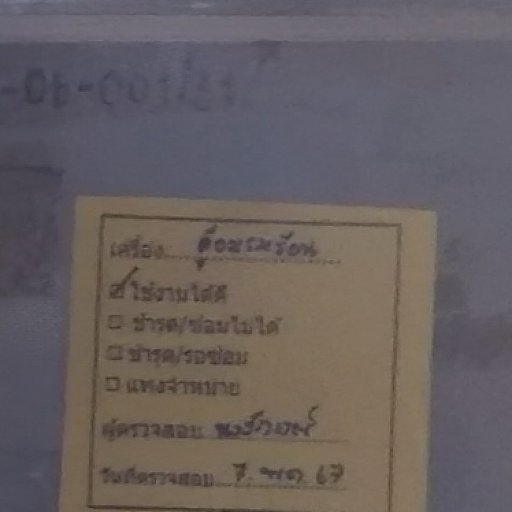 -06-001/31
เครื่อง ตู้อบลมร้อน
☑ ใช้งานได้ดี
☐ ชำรุด/ซ่อมไม่ได้
☐ ชำรุด/รอซ่อม
☐ แทงจำหน่าย
ผู้ตรวจสอบ
วันที่ตรวจสอบ 7. พค 67